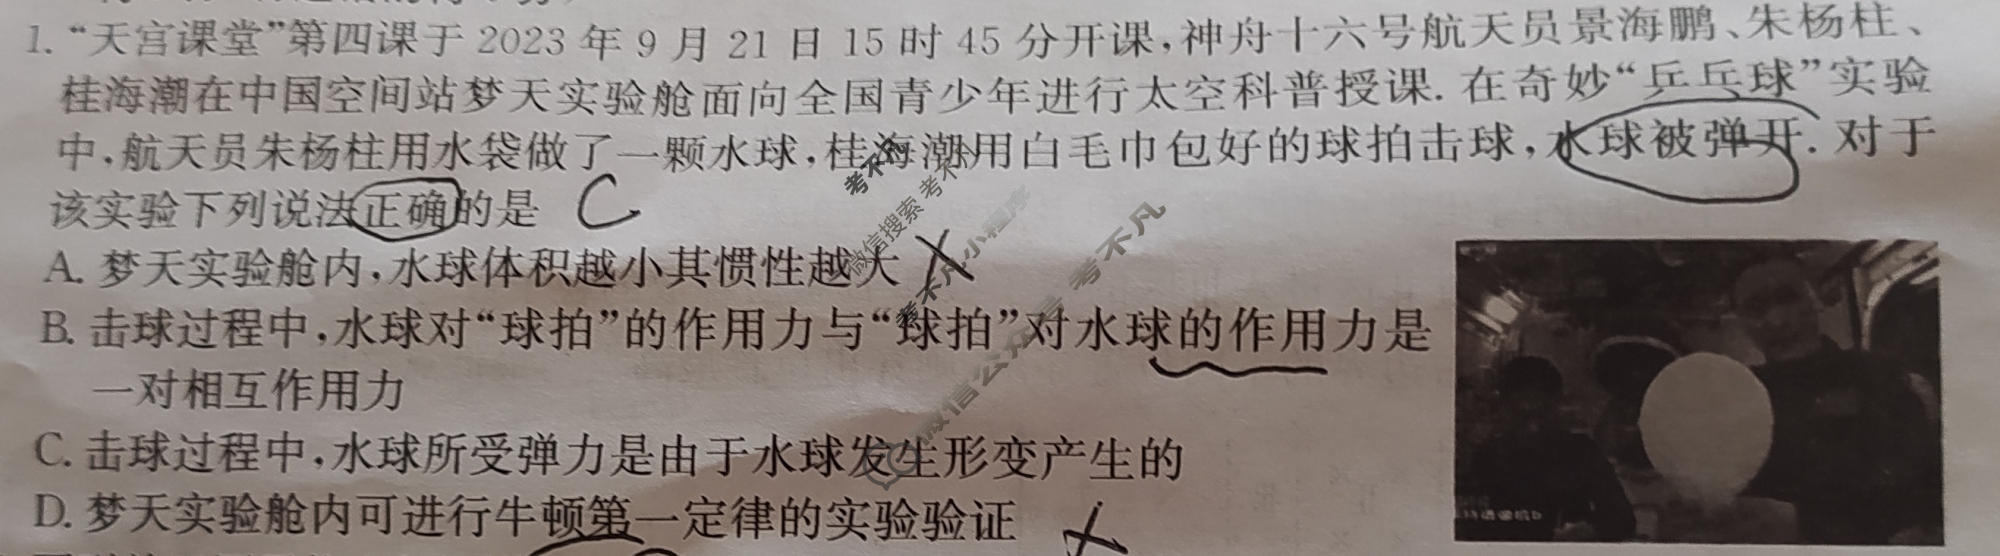 1. “天宫课堂”第四课于 2023 年 9 月 21 日 15 时 45 分开课,神舟十六号航天员景海鹏、朱杨柱、
桂海潮在中国空间站梦天实验舱面向全国青少年进行太空科普授课. 在奇妙“乒乓球”实验
中,航天员朱杨柱用水袋做了一颗水球,桂海潮用白毛巾包好的球拍击球,水球被弹开. 对于
该实验下列说法正确的是 C
A. 梦天实验舱内,水球体积越小其惯性越大 ×
B. 击球过程中,水球对“球拍”的作用力与“球拍”对水球的作用力是
一对相互作用力
C. 击球过程中,水球所受弹力是由于水球发生形变产生的
D. 梦天实验舱内可进行牛顿第一定律的实验验证 ×
考不凡
微信搜索 考不
考不凡小程序
微信公众号 考不凡